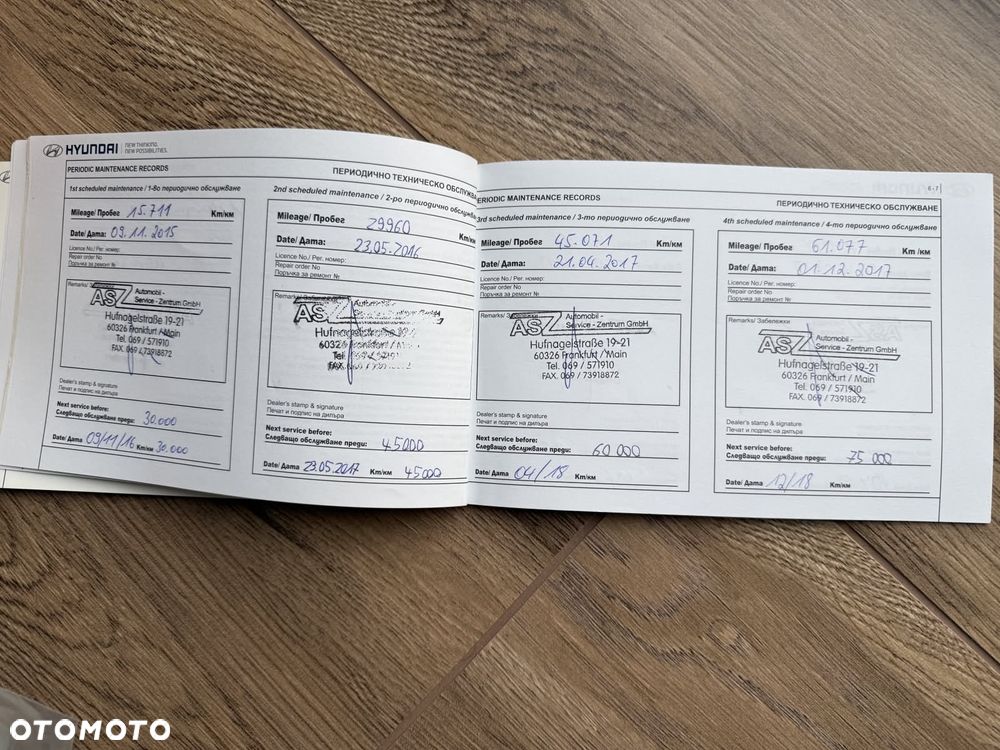 HYUNDAI NEW THINKING. NEW POSSIBILITIES.
PERIODIC MAINTENANCE RECORDS
ПЕРИОДИЧНО ТЕХНИЧЕСКО ОБСЛУЖВА
1st scheduled maintenance / 1-во периодично обслужване
Mileage/ Пробег 15.711 Km/км
Date/ Дама: 09.11.2015
Licence No./ Рег. номер:
Repair order No
Поръчка за ремонт №
Remarks/
ASZ Automobil -
Service - Zentrum GmbH
Hufnagelstraße 19-21
60326 Frankfurt /Main
Tel. 069 / 571910
FAX. 069 / 73918872
Dealer's stamp & signature
Печат и подпис на дилъра
Next service before:
Следващо обслужване преди: 30.000
Date/ Дата 09/11/16 Km/км 30.000
2nd scheduled maintenance / 2-ро периодично обслужване
Mileage/ Пробег 29960 Km/км
Date/ Дата: 23.05.2016
Licence No./ Рег. номер:
Repair order No
Поръчка за ремонт №
Remarks/
ASZ
60326 Frankfurt
Tel.
FAX.
Dealer's stamp & signature
Печат и подпис на дилъра
Next service before:
Следващо обслужване преди: 45000
Date/ Дата 23.05.2017 Km/км 45000
PERIODIC MAINTENANCE RECORDS
6-7
ПЕРИОДИЧНО ТЕХНИЧЕСКО ОБСЛУЖВАНЕ
3rd scheduled maintenance / 3-то периодично обслужване
Mileage/ Пробег 45.071 Km/км
Date/ Дата: 21.04.2017
Licence No./ Рег. номер:
Repair order No
Поръчка за ремонт №
Remarks/
ASZ Automobil -
Service - Zentrum GmbH
Hufnagelstraße 19-21
60326 Frankfurt /Main
Tel. 069 / 571910
FAX. 069 / 73918872
Dealer's stamp & signature
Печат и подпис на дилъра
Next service before:
Следващо обслужване преди: 60 000
Date/ Дата 04/18 Km/км
4th scheduled maintenance / 4-то периодично обслужване
Mileage/ Пробег 61.077 Km /км
Date/ Дата: 01.12.2017
Licence No./ Рег. номер:
Repair order No
Поръчка за ремонт №
Remarks/ Забележки
ASZ Automobil -
Service - Zentrum GmbH
Hufnagelstraße 19-21
60326 Frankfurt /Main
Tel. 069 / 571910
FAX. 069 / 73918872
Dealer's stamp & signature
Печат и подпис на дилъра
Next service before:
Следващо обслужване преди: 75 000
Date/ Дата 12/18 Km/км
OTOMOTO